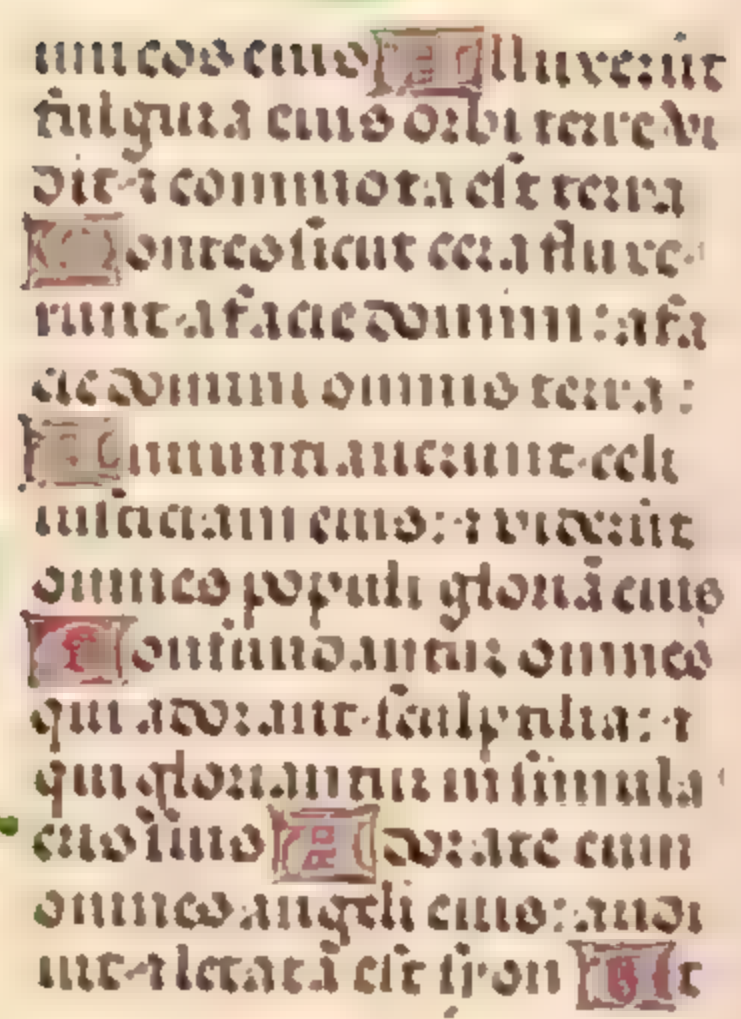 imicos eius Illuxerūt
fulgura eius orbi terre vi
dit ⁊ commota est terra
Montes sicut cera fluxe
runt a facie domini : a fa
cie domini omnis terra :
Annunciauerunt celi
iusticiam eius : ⁊ viderūt
omnes populi gloriā eius
Confundantur omnes
qui adorant sculptilia : ⁊
qui gloriantur in simula
cris suis Adorate eum
omnes angeli eius : audi
uit ⁊ letata est syon Et